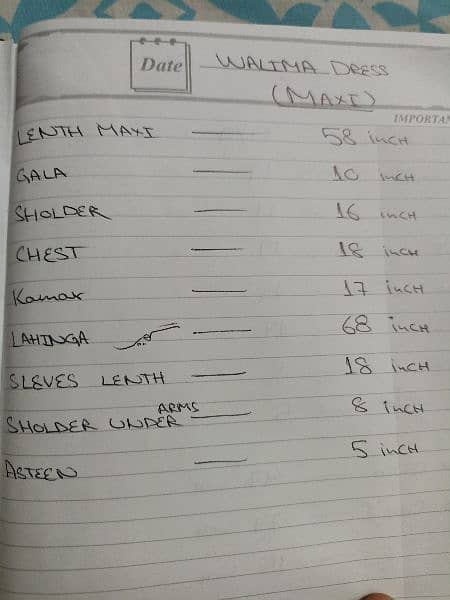 Date WALIMA DRESS
(MAXI)
IMPORTAN
LENTH MAXI — 58 inCH
GALA — 10 inCH
SHOLDER — 16 inCH
CHEST — 18 inCH
Kamar — 17 inCH
LAHINGA گھیر — 68 inCH
SLEVES LENTH — 18 inCH
SHOLDER UNDER ARMS — 8 inCH
ASTEEN — 5 inCH